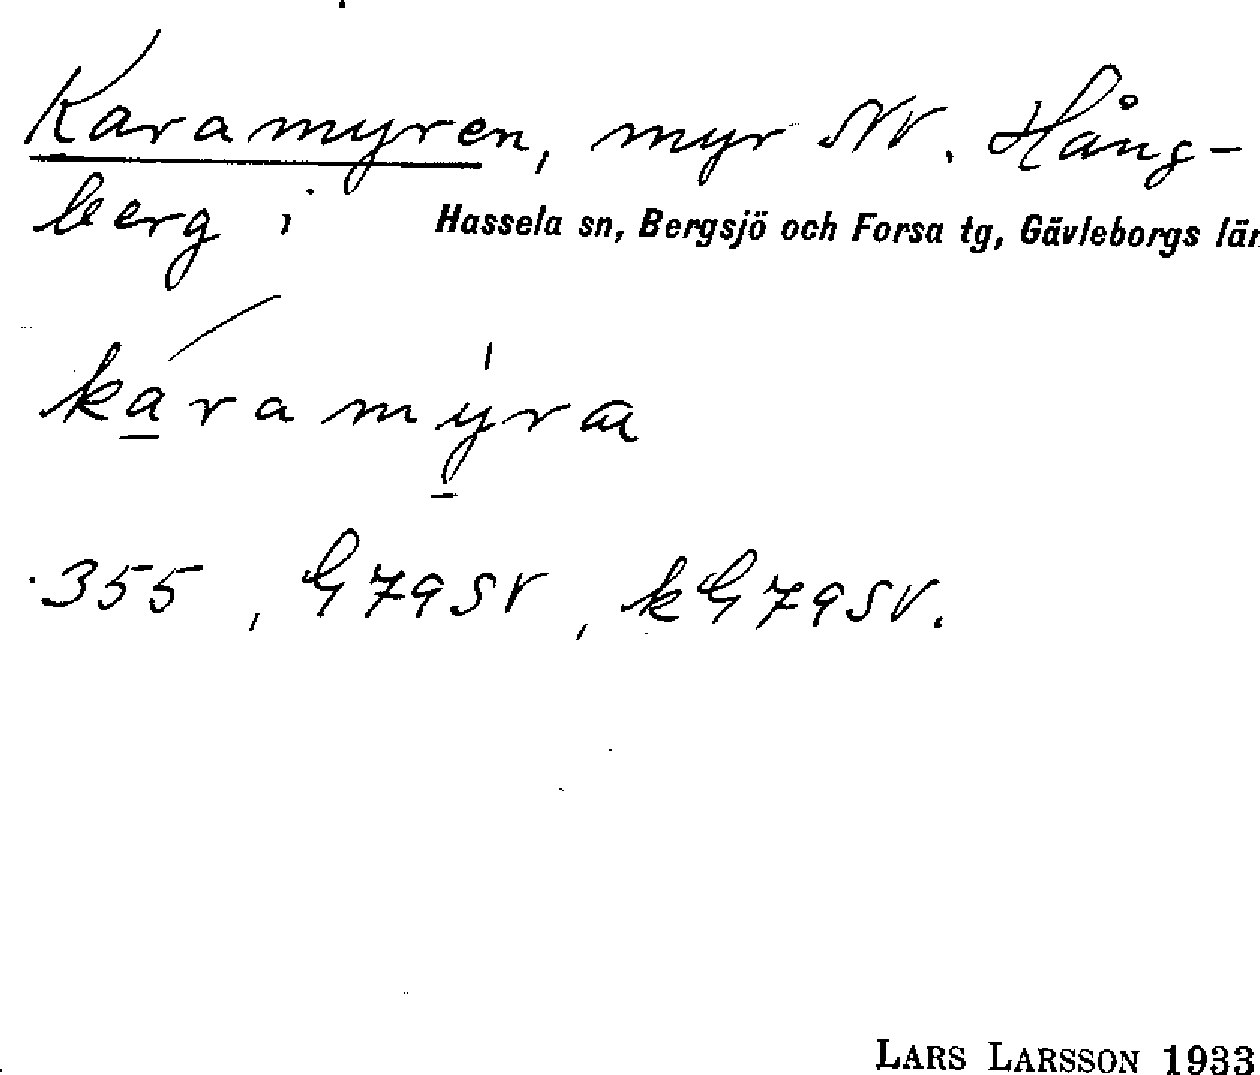 Karamyren, myr NV. Hång-
berg i Hassela sn, Bergsjö och Forsa tg, Gävleborgs län
káramy̍ra
355, G79SV, kG79SV.
LARS LARSSON 1933